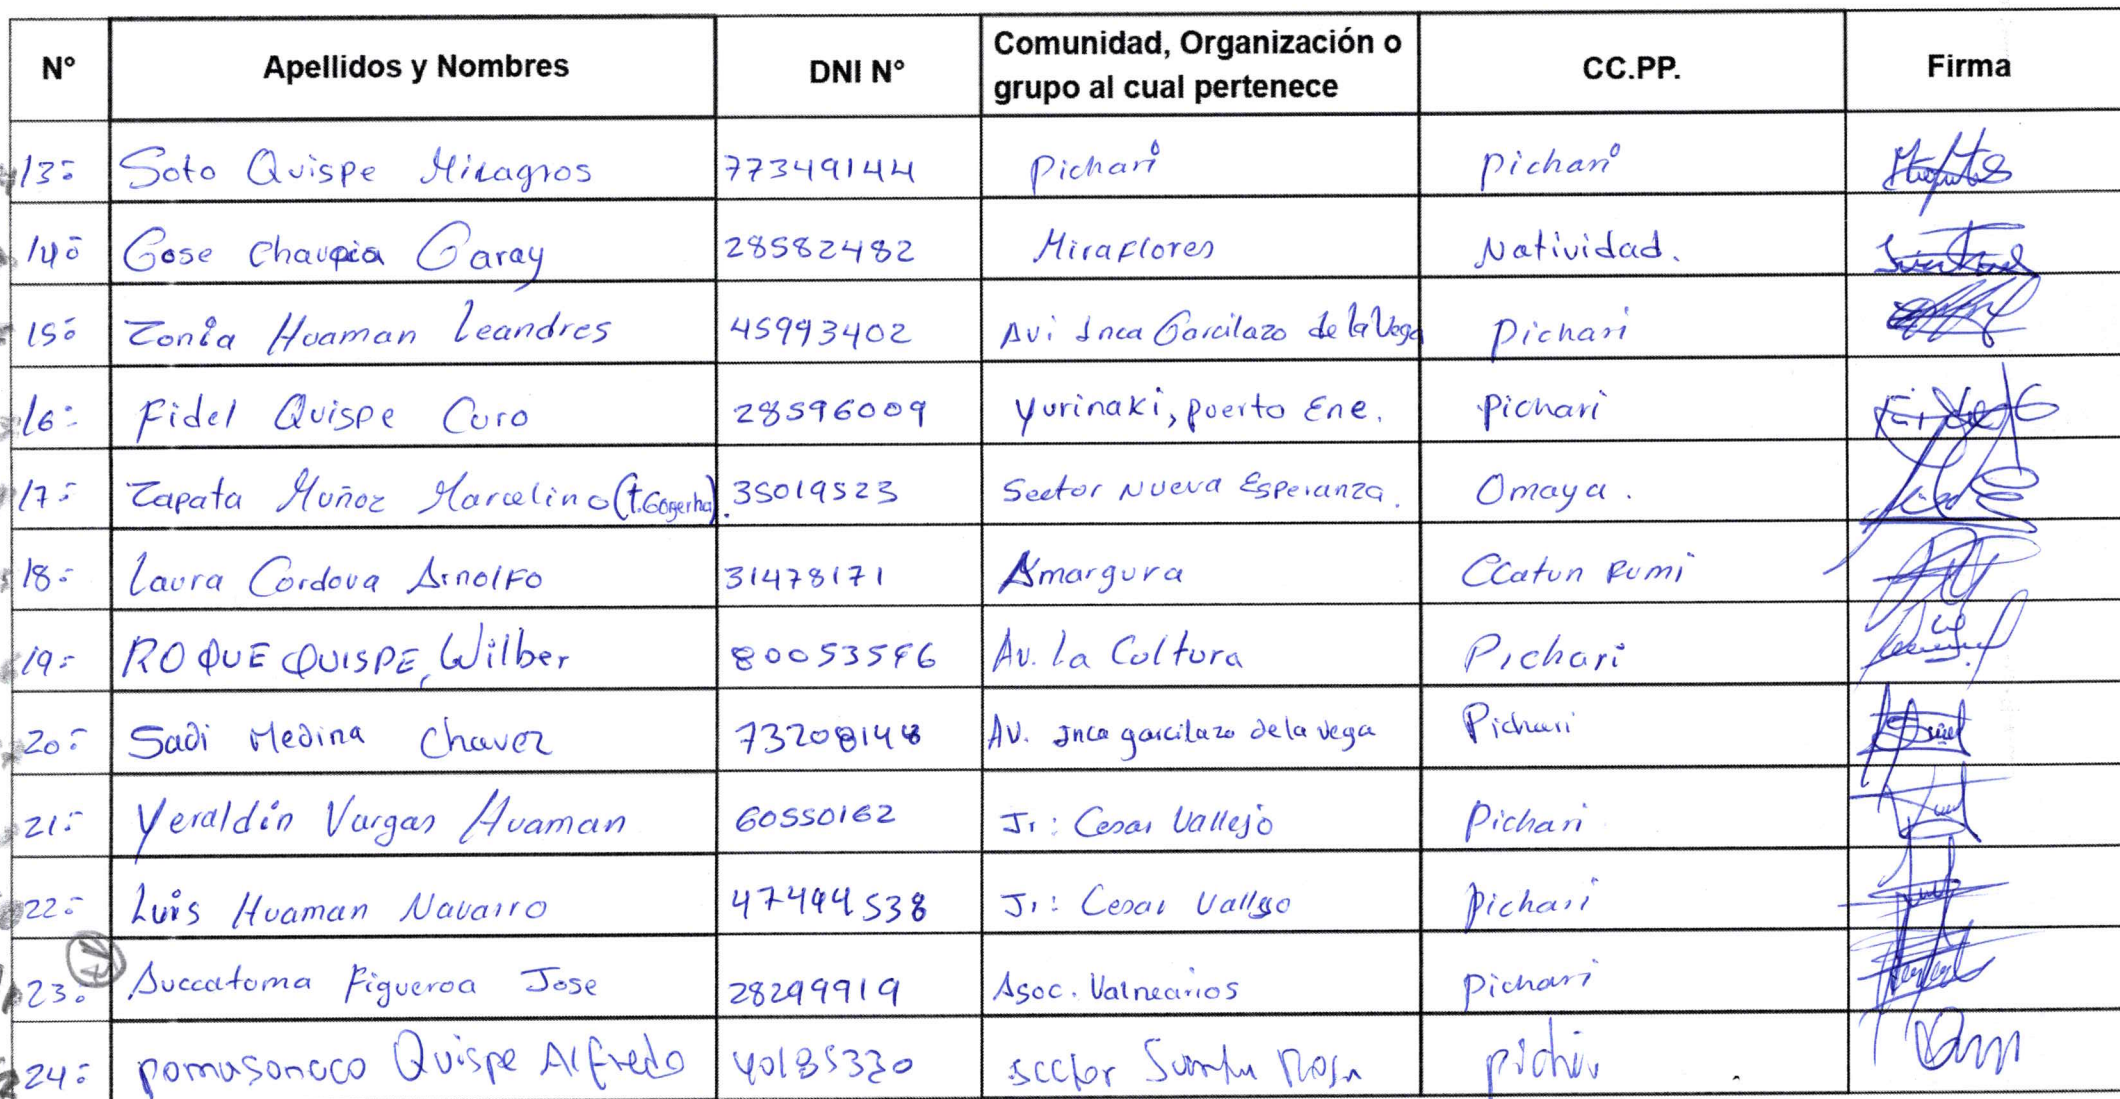 N° Apellidos y Nombres DNI N° Comunidad, Organización o grupo al cual pertenece CC.PP. Firma
13.- Soto Quispe Milagros 77349144 Pichari Pichari
14.- Gose Chaupia Garay 28582482 Miraflores Natividad.
15.- Zonia Huaman Leandres 45993402 Avi Inca Garcilazo de la Vega Pichari
16.- Fidel Quispe Curo 28596009 Yurinaki, puerto Ene. Pichari
17.- Zapata Muñoz Marcelino 35019523 Sector Nueva Esperanza. Omaya.
18.- Laura Cordova Arnolfo 31478171 Amargura Ccatun Rumi
19.- ROQUE QUISPE, Wilber Av. La Cultura Pichari
20.- Sadi Medina Chavez 73208148 Av. Inca garcilazo de la vega Pichari
21.- Yeraldin Vargas Huaman 60550162 Jr: Cesar Vallejo Pichari
22.- Luis Huaman Navarro 47494538 Jr: Cesar Vallejo Pichari
23.- Auccatoma Figueroa Jose 28299919 Asoc. Valnearios Pichari
24.- Quispe Alfredo sector Santa Rosa